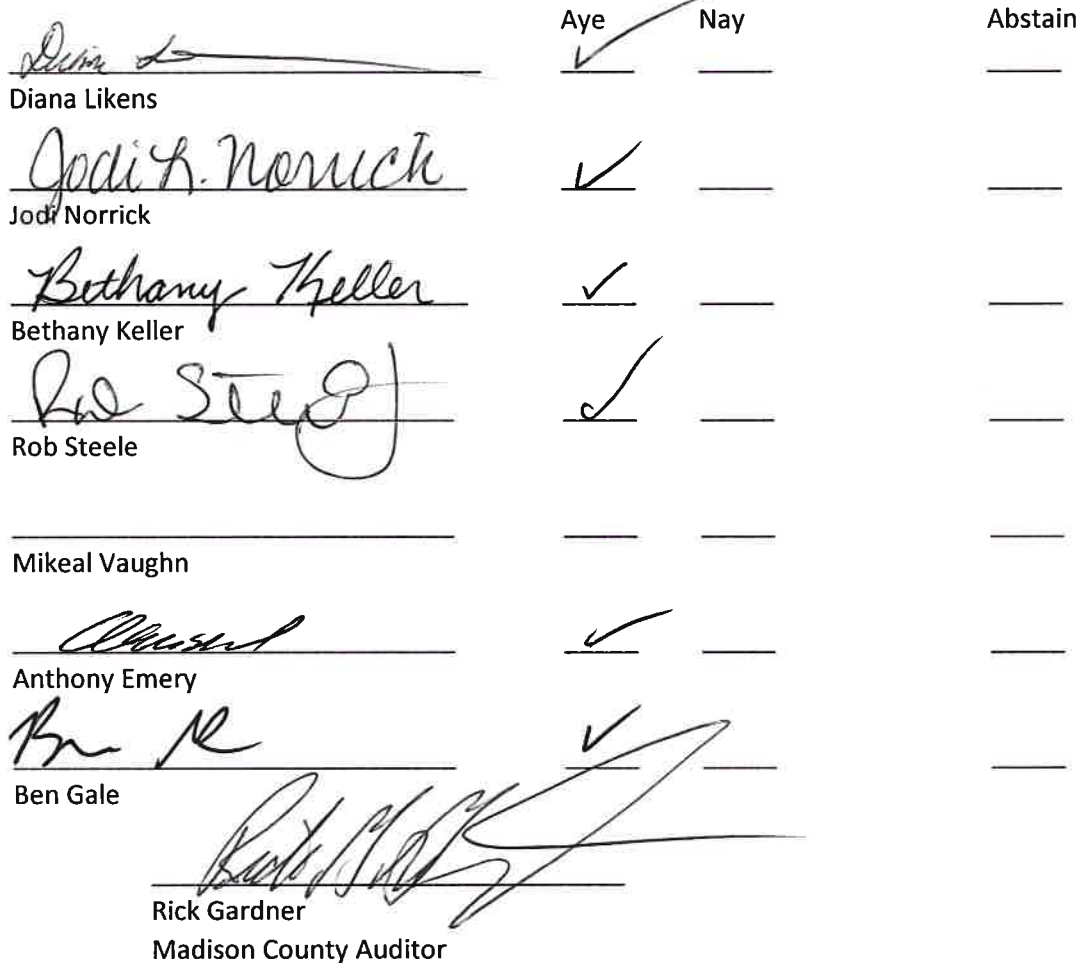 Aye Nay Abstain
Diana Likens
Jodi L. Norrick
Jodi Norrick
Bethany Keller
Bethany Keller
Rob Steele
Rob Steele
Mikeal Vaughn
Anthony Emery
Ben
Ben Gale
Rick Gardner
Madison County Auditor